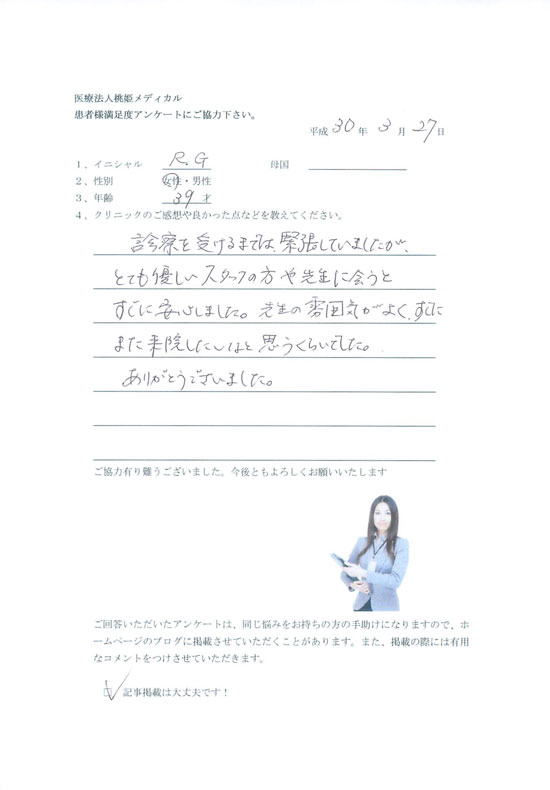 医療法人桃姫メディカル
患者様満足度アンケートにご協力下さい。
平成 30 年 3 月 27 日
1、イニシャル R.G 母国
2、性別 女性・男性
3、年齢 39 才
4、クリニックのご感想や良かった点などを教えてください。
診療を受けるまでは、緊張していましたが、
とても優しいスタッフの方や先生に会うと
すぐに安心しました。先生の雰囲気がよく、すぐに
また来院したいなと思うくらいでした。
ありがとうございました。
ご協力有り難うございました。今後ともよろしくお願いいたします
ご回答いただいたアンケートは、同じ悩みをお持ちの方の手助けになりますので、ホ
ームページのブログに掲載させていただくことがあります。また、掲載の際には有用
なコメントをつけさせていただきます。
記事掲載は大丈夫です！